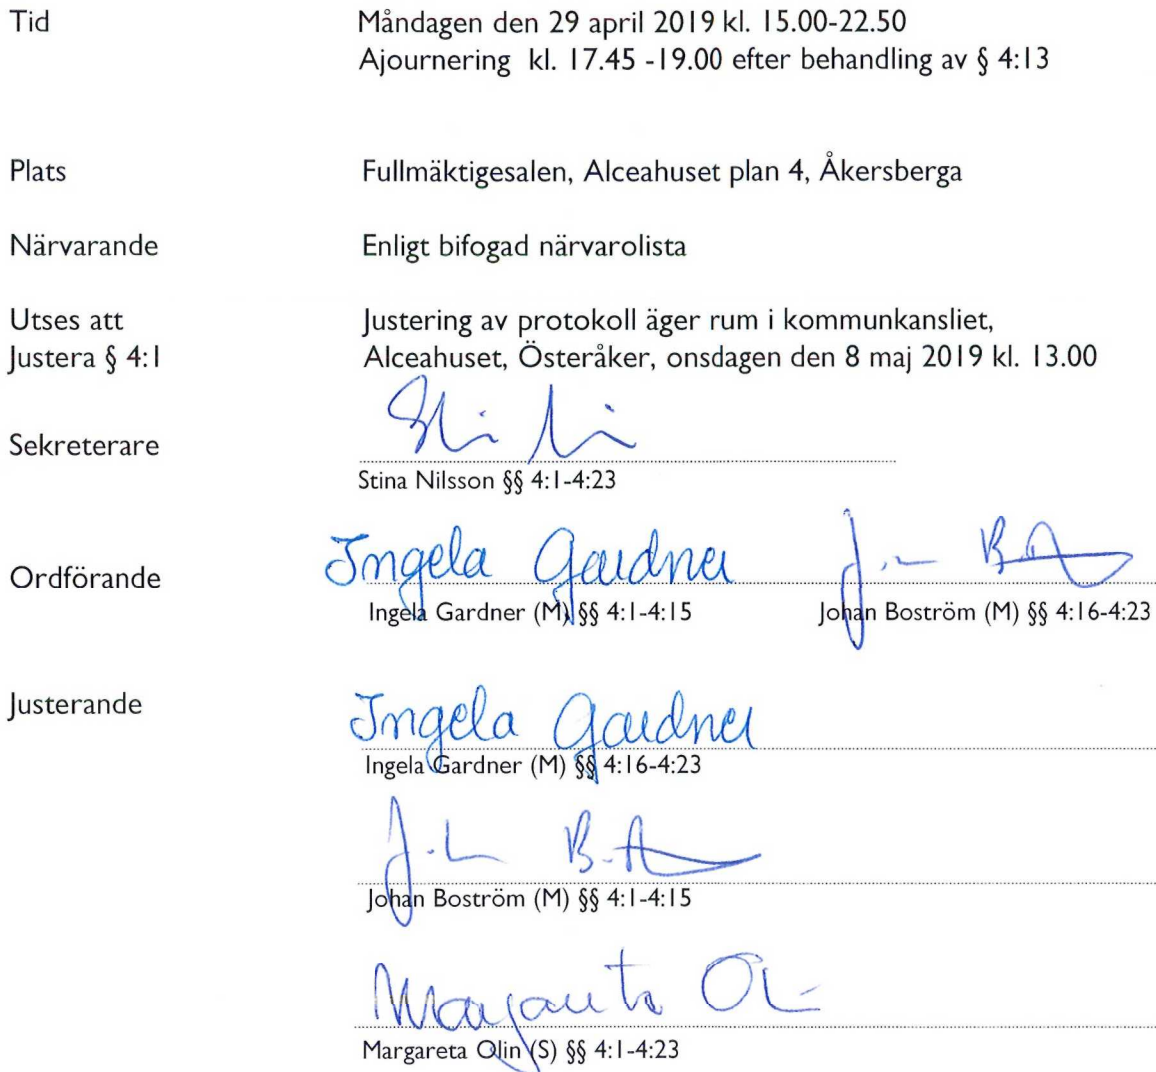 Tid Måndagen den 29 april 2019 kl. 15.00-22.50
Ajournering kl. 17.45 -19.00 efter behandling av § 4:13
Plats Fullmäktigesalen, Alceahuset plan 4, Åkersberga
Närvarande Enligt bifogad närvarolista
Utses att Justering av protokoll äger rum i kommunkansliet,
Justera § 4:1 Alceahuset, Österåker, onsdagen den 8 maj 2019 kl. 13.00
Sekreterare
Stina Nilsson §§ 4:1-4:23
Ordförande Ingela Gardner
Ingela Gardner (M) §§ 4:1-4:15 Johan Boström (M) §§ 4:16-4:23
Justerande Ingela Gardner
Ingela Gardner (M) §§ 4:16-4:23
Johan Boström (M) §§ 4:1-4:15
Margareta Ol
Margareta Olin (S) §§ 4:1-4:23